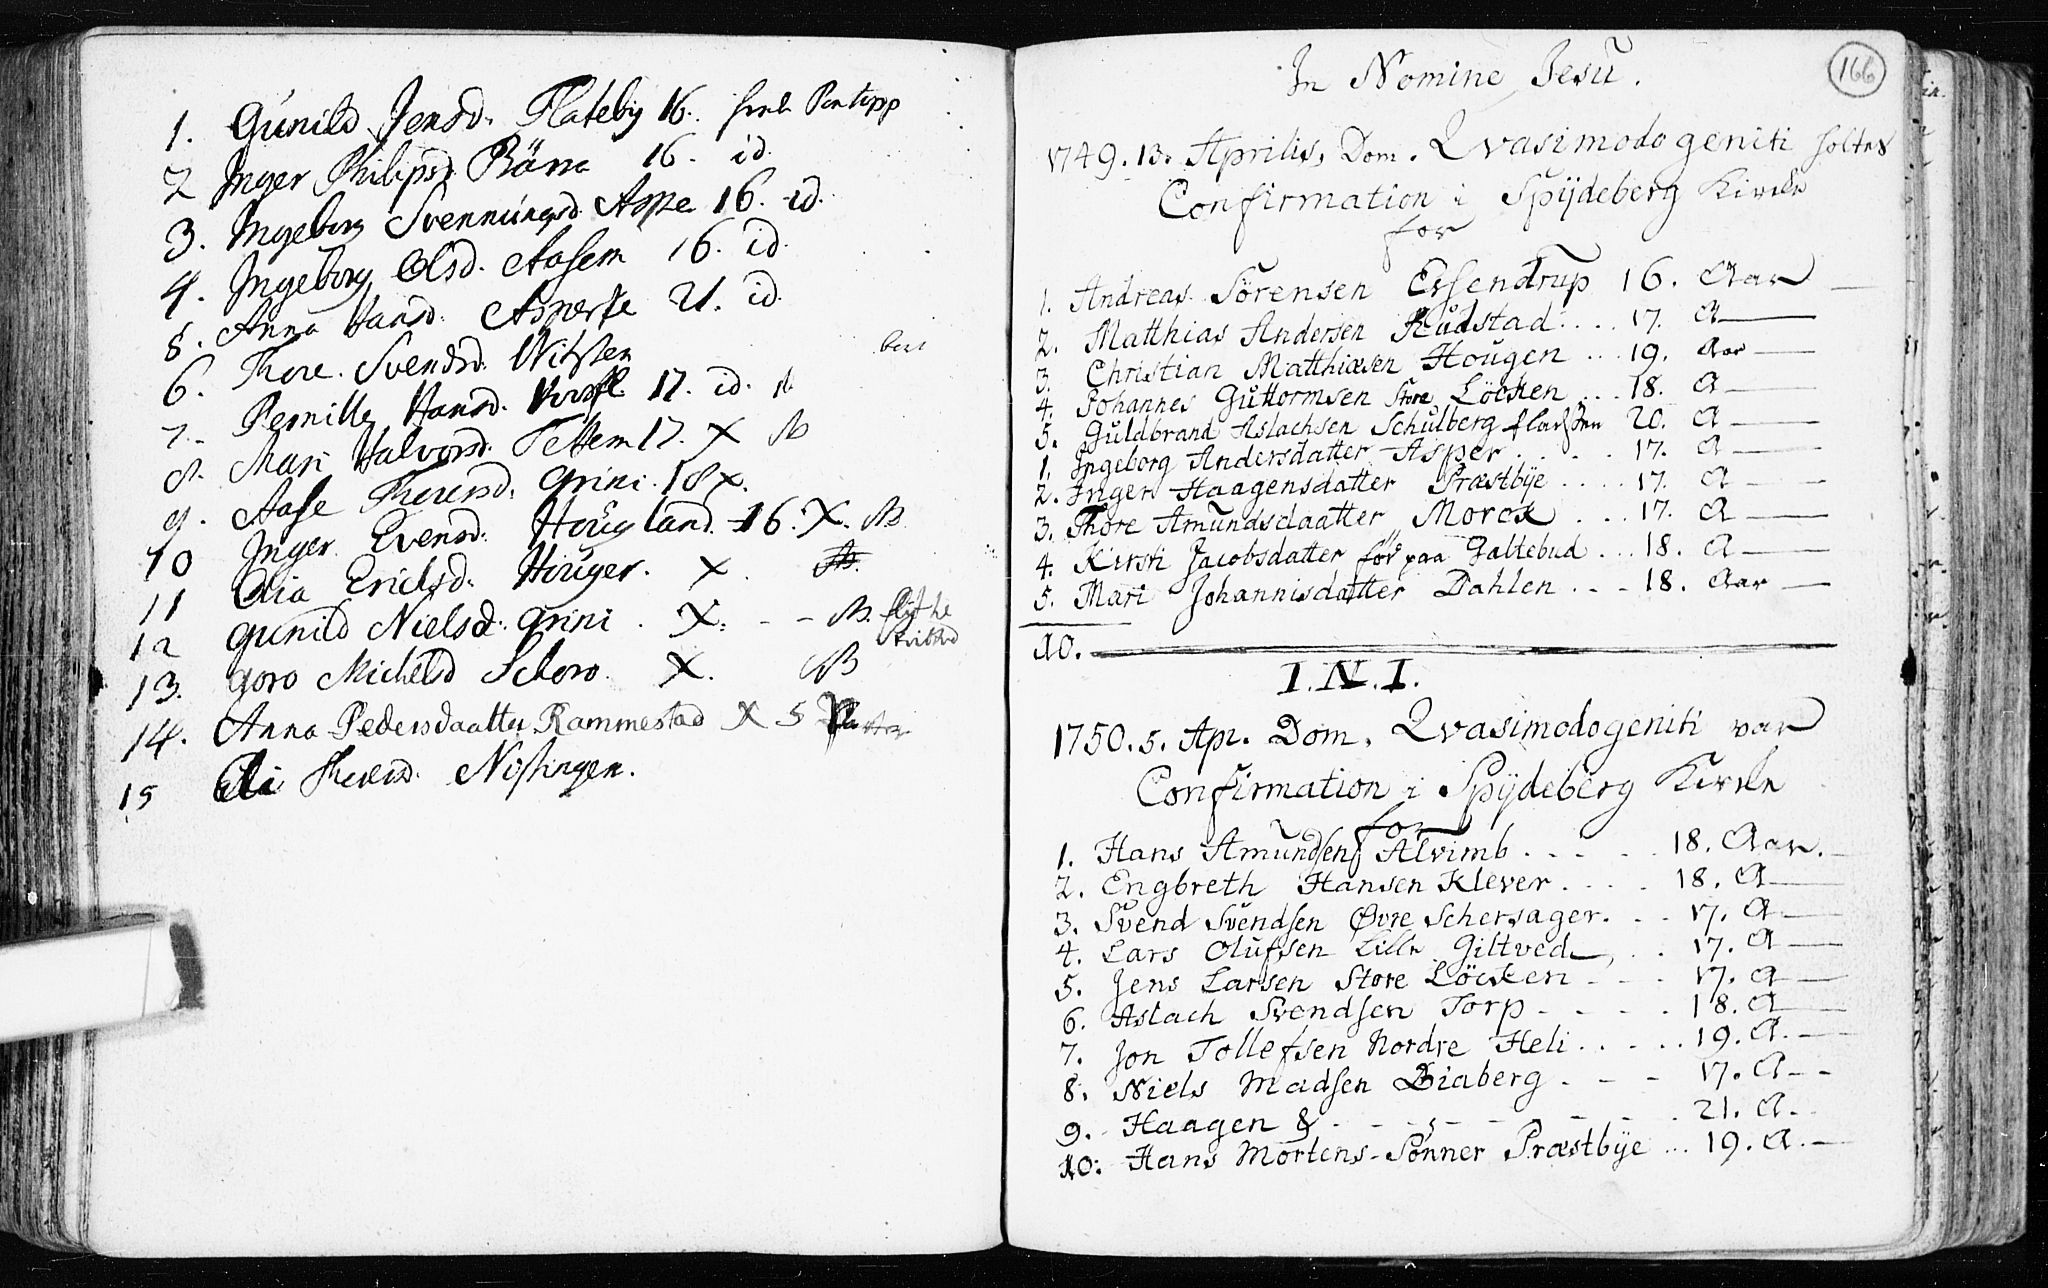 1. Gunild Jensd. Flateby 16.
2 Inger Philipsd. 16. id.
3. Ingeborg Svenningsd. Aspe 16. id.
4. Ingeborg Olsd. Aasem 16. id.
5. Anna Hansd. 21. id.
6. Thore. Svendsd.
7. Pernille Hansd. 17. id.
8. Mari Halvorsd. 17. X NB
9. Aase Thoresd. Grini. 18 X.
10 Inger Evensd. Hougland. 16. X. NB
11 Olia Ericksd. Houger. X. NB.
12 Gunild Nielsd. Grini. X. - - NB.
13. Goro Michelsd X. NB
14. Anna Pedersdaatter Rammestad X 5
15 Eli Thoresd.
166
In Nomine Jesu.
1749. 13. Aprilis, Dom. Qvasimodogeniti holtes
Confirmation i Spydeberg Kircke
for
1. Andreas Sörensen Essendrup 16. Aar
2. Matthias Andersen Rudstad.... 17. A
3. Christian Matthiæsen Hougen ... 19. Aar
4. Johannes Guttormsen Store Löcken ... 18. A
5. Guldbrand Aslachsen Schulberg 20. A
1. Ingeborg Andersdatter Asper.... 17. A
2. Inger Haagensdatter Præstbye .... 17. A
3. Thore Amundsdaatter Morck ... 17. A
4. Kirsti Jacobsdatter för paa Galtebud ... 18. A
5. Mari Johannisdatter Dahlen... 18. Aar
10.
I.N.I.
1750. 5. Apr. Dom. Qvasimodogeniti var
Confirmation i Spydeberg Kircke
for
1. Hans Amundsen Alvimb..... 18. Aar.
2. Engbreth Hansen Klever.... 18. A
3. Svend Svendsen Øvre Schersager... 17. A
4. Lars Olufsen Lille Giltved.. 17. A
5. Jens Larsen Store Löcken... 17. A
6. Aslach Svendsen Torp..... 18. A
7. Jon Tollefsen Nordre Heli..... 19. A.
8. Niels Madsen Diaberg - - - 17. A
9. Haagen & - - - - - - 21. A.
10. Hans Mortens-Sønner Præstbye ... 19. A.